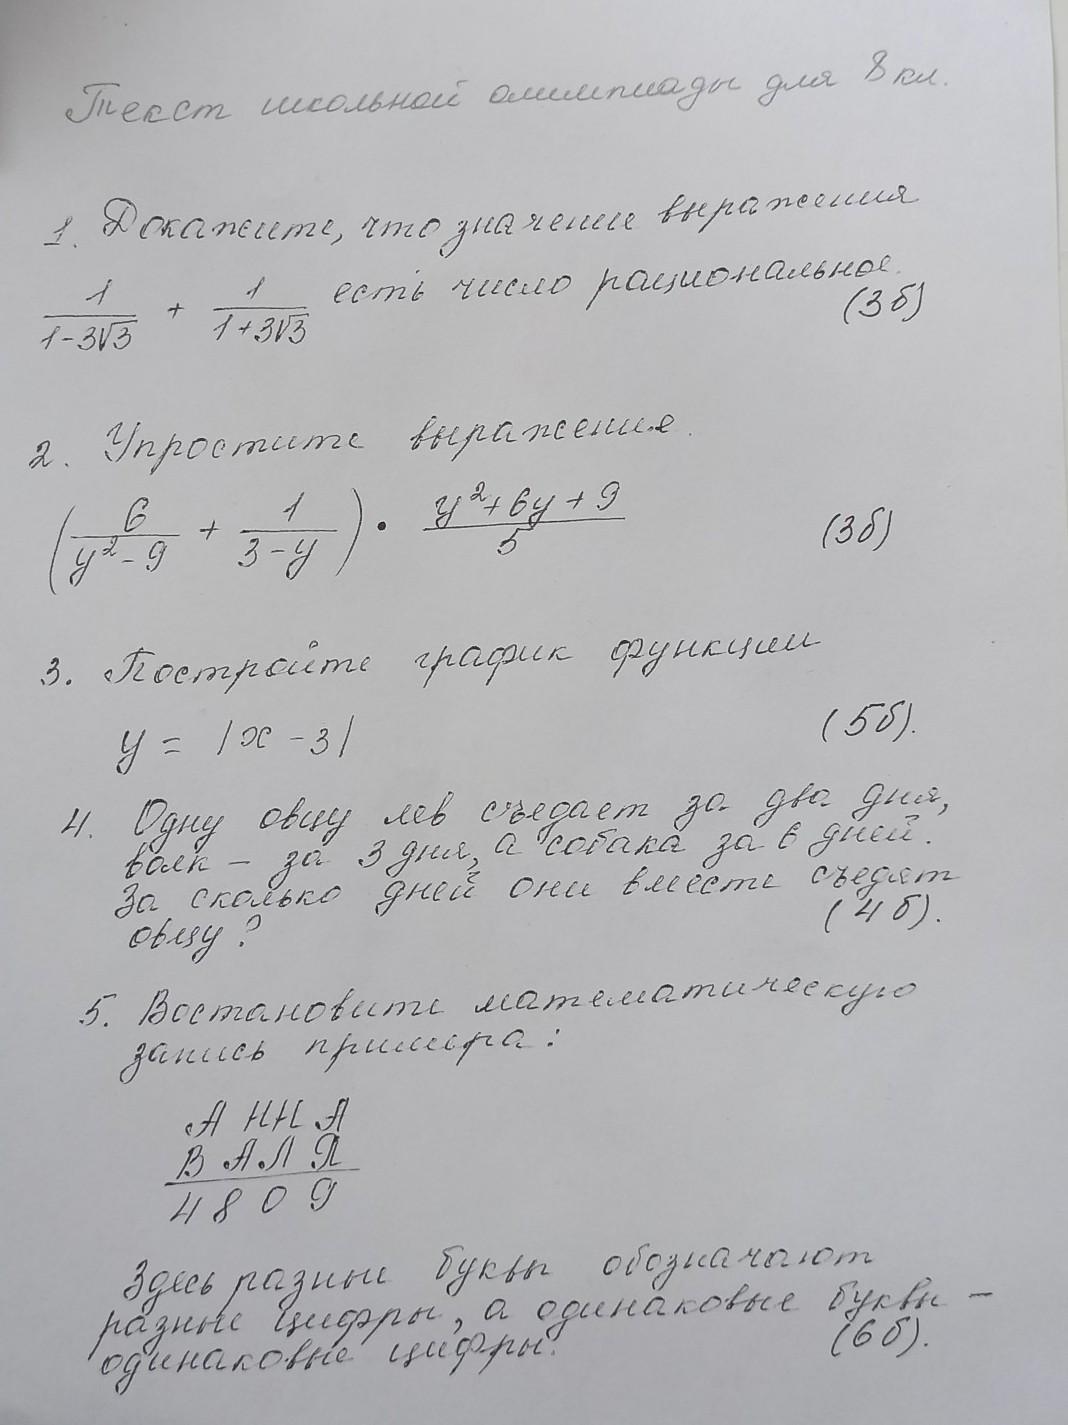 Текст школьной олимпиады для 8 кл.
1. Докажите, что значение выражения
1/(1-3√3) + 1/(1+3√3) есть число рациональное.
(3б)
2. Упростите выражение.
(6/(y²-9) + 1/(3-y)) · (y²+6y+9)/5 (3б)
3. Постройте график функции
y = |x-3| (5б).
4. Одну овцу лев съедает за два дня,
волк – за 3 дня, а собака за 6 дней.
За сколько дней они вместе съедят
овцу? (4б).
5. Востановите математическую
запись примера:
АННА
ВАЛЯ
4809
Здесь разные буквы обозначают
разные цифры, а одинаковые буквы –
одинаковые цифры. (6б).